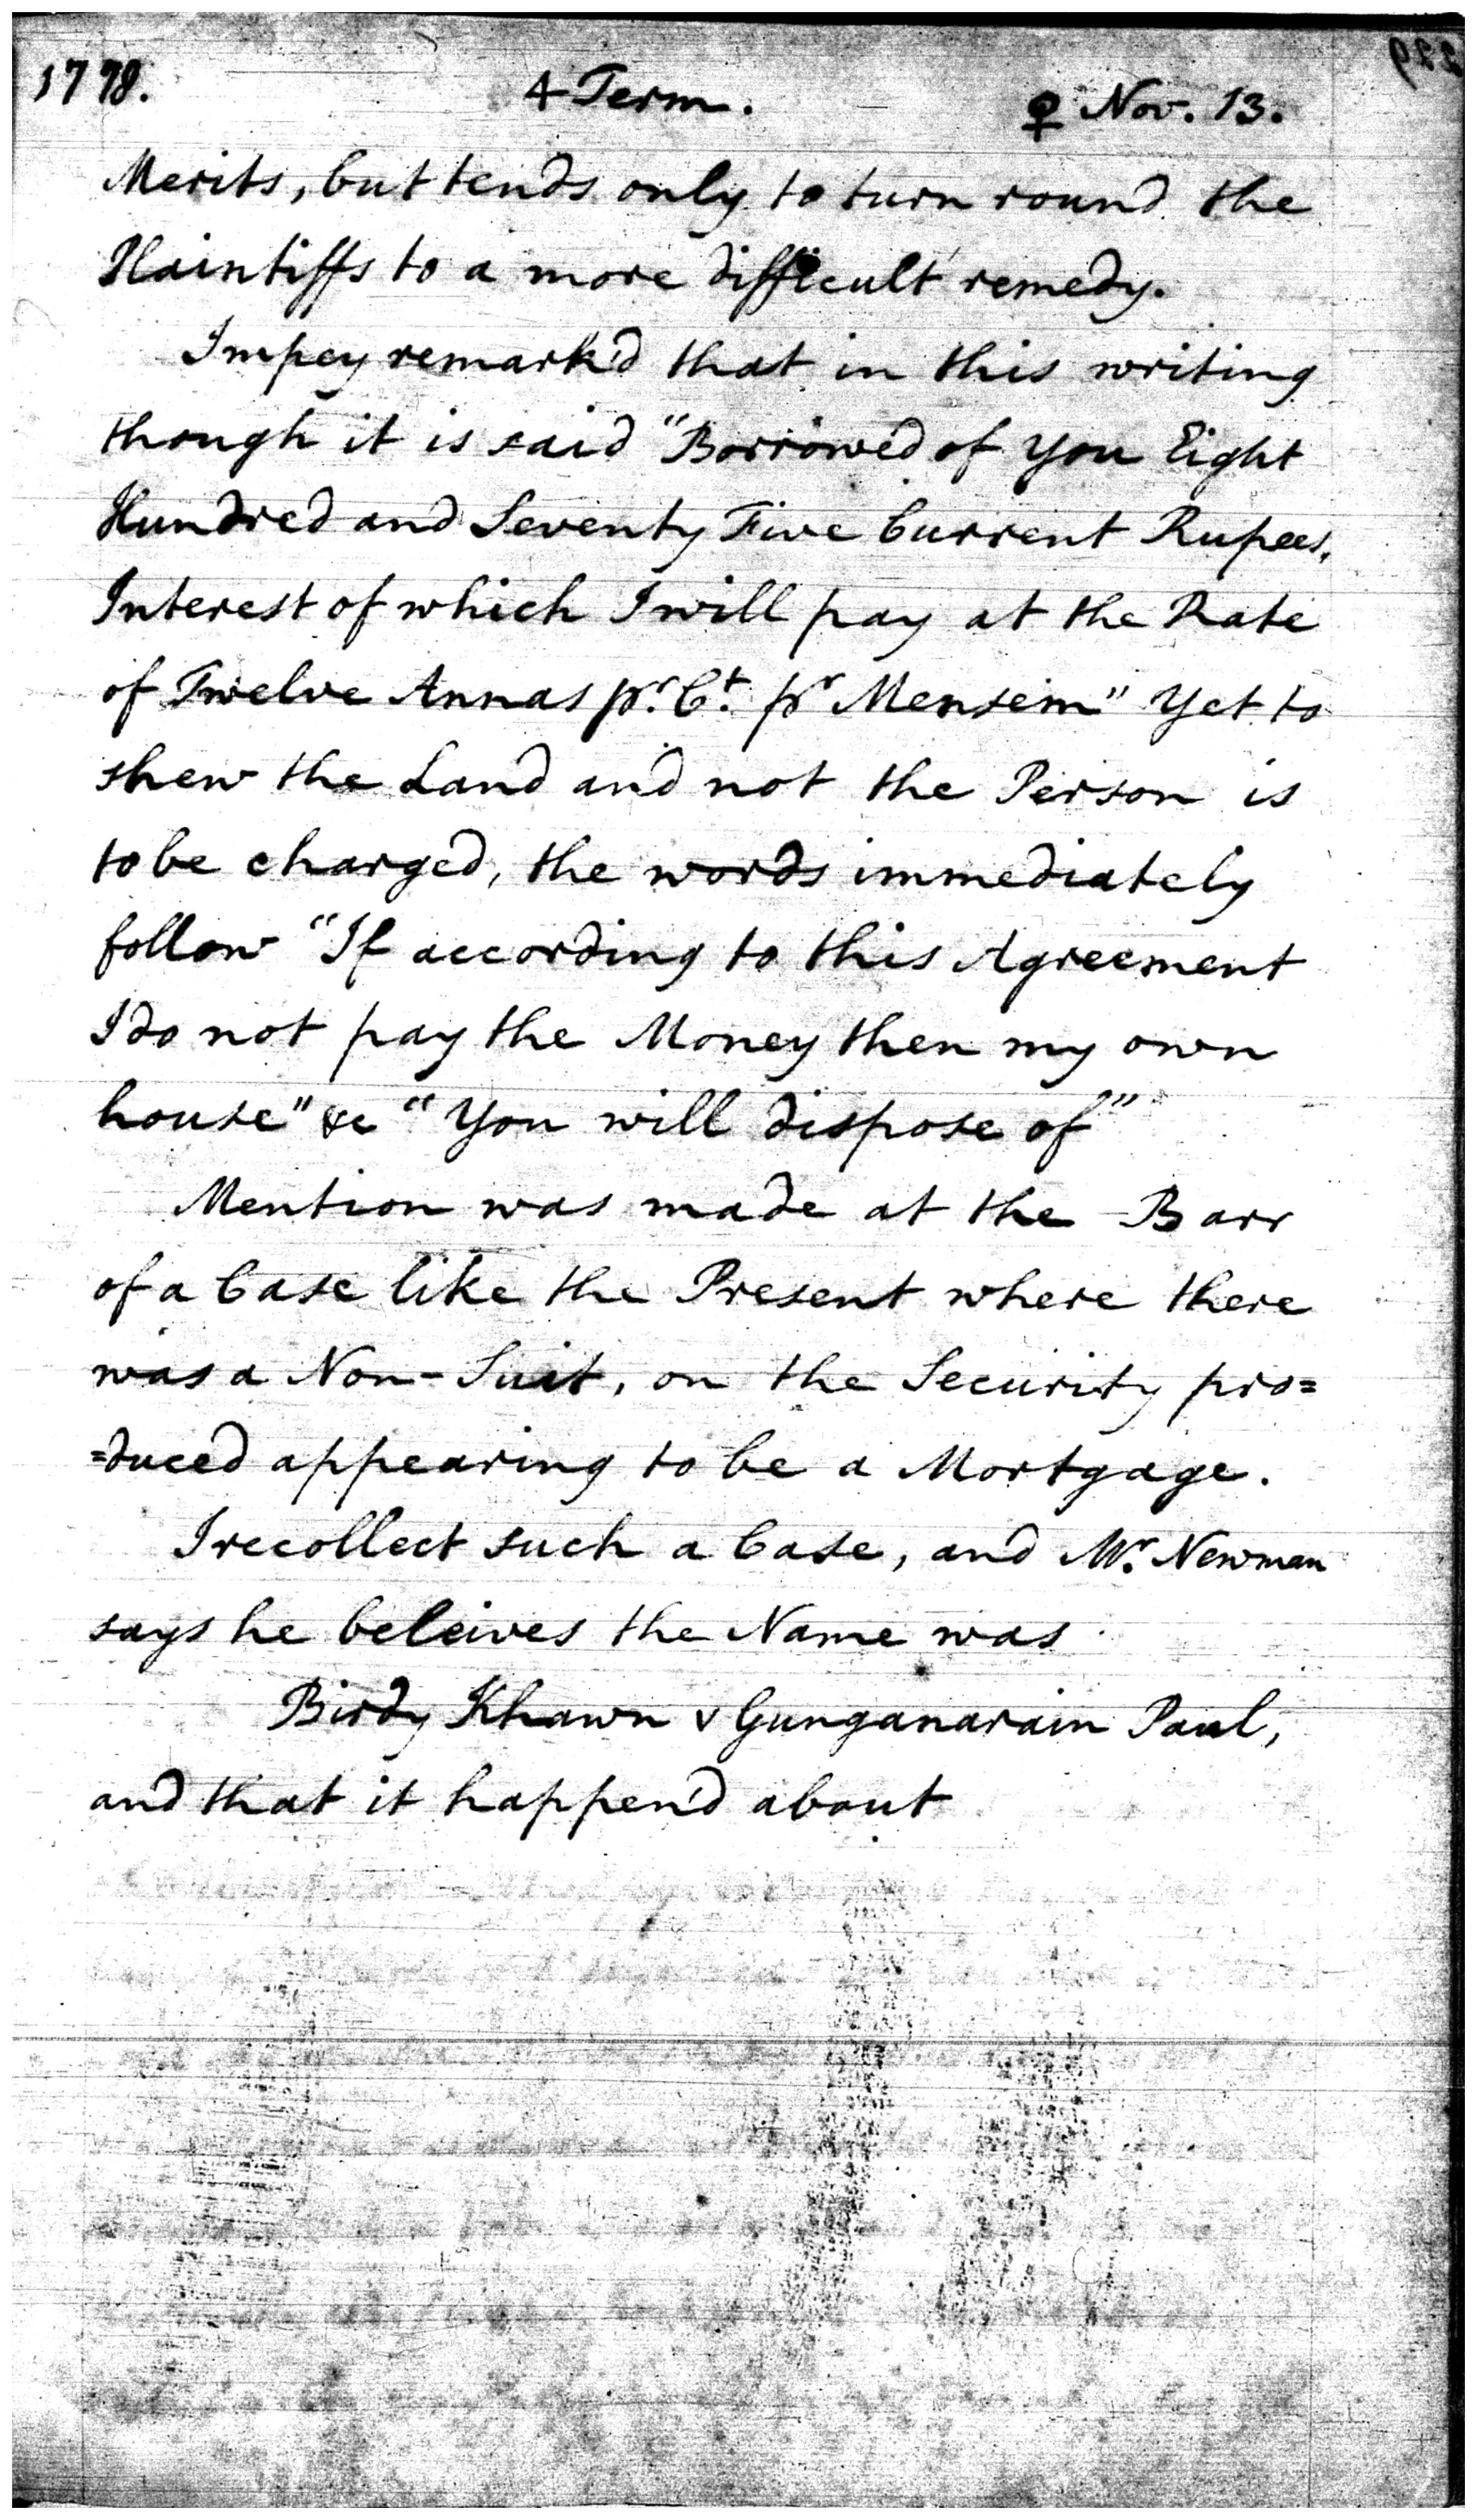 1778. 4 Term. ♀ Nov. 13.
Merits, but tends only to turn round the
Plaintiffs to a more difficult remedy.
Impey remark'd that in this writing
though it is said "Borrowed of you Eight
Hundred and Seventy Five Current Rupees,
Interest of which I will pay at the Rate
of Twelve Annas pr. Ct. pr Mensem" Yet to
shew the Land and not the Person is
to be charged, the words immediately
follow "If according to this Agreement
I do not pay the Money then my own
house" &c "You will dispose of"
Mention was made at the Barr
of a Case like the Present where there
was a Non-Suit, on the Security pro=
=duced appearing to be a Mortgage.
I recollect such a Case, and Mr. Newman
says he beleives the Name was
Birdy Khawn v Gunganarain Paul,
and that it happen'd about